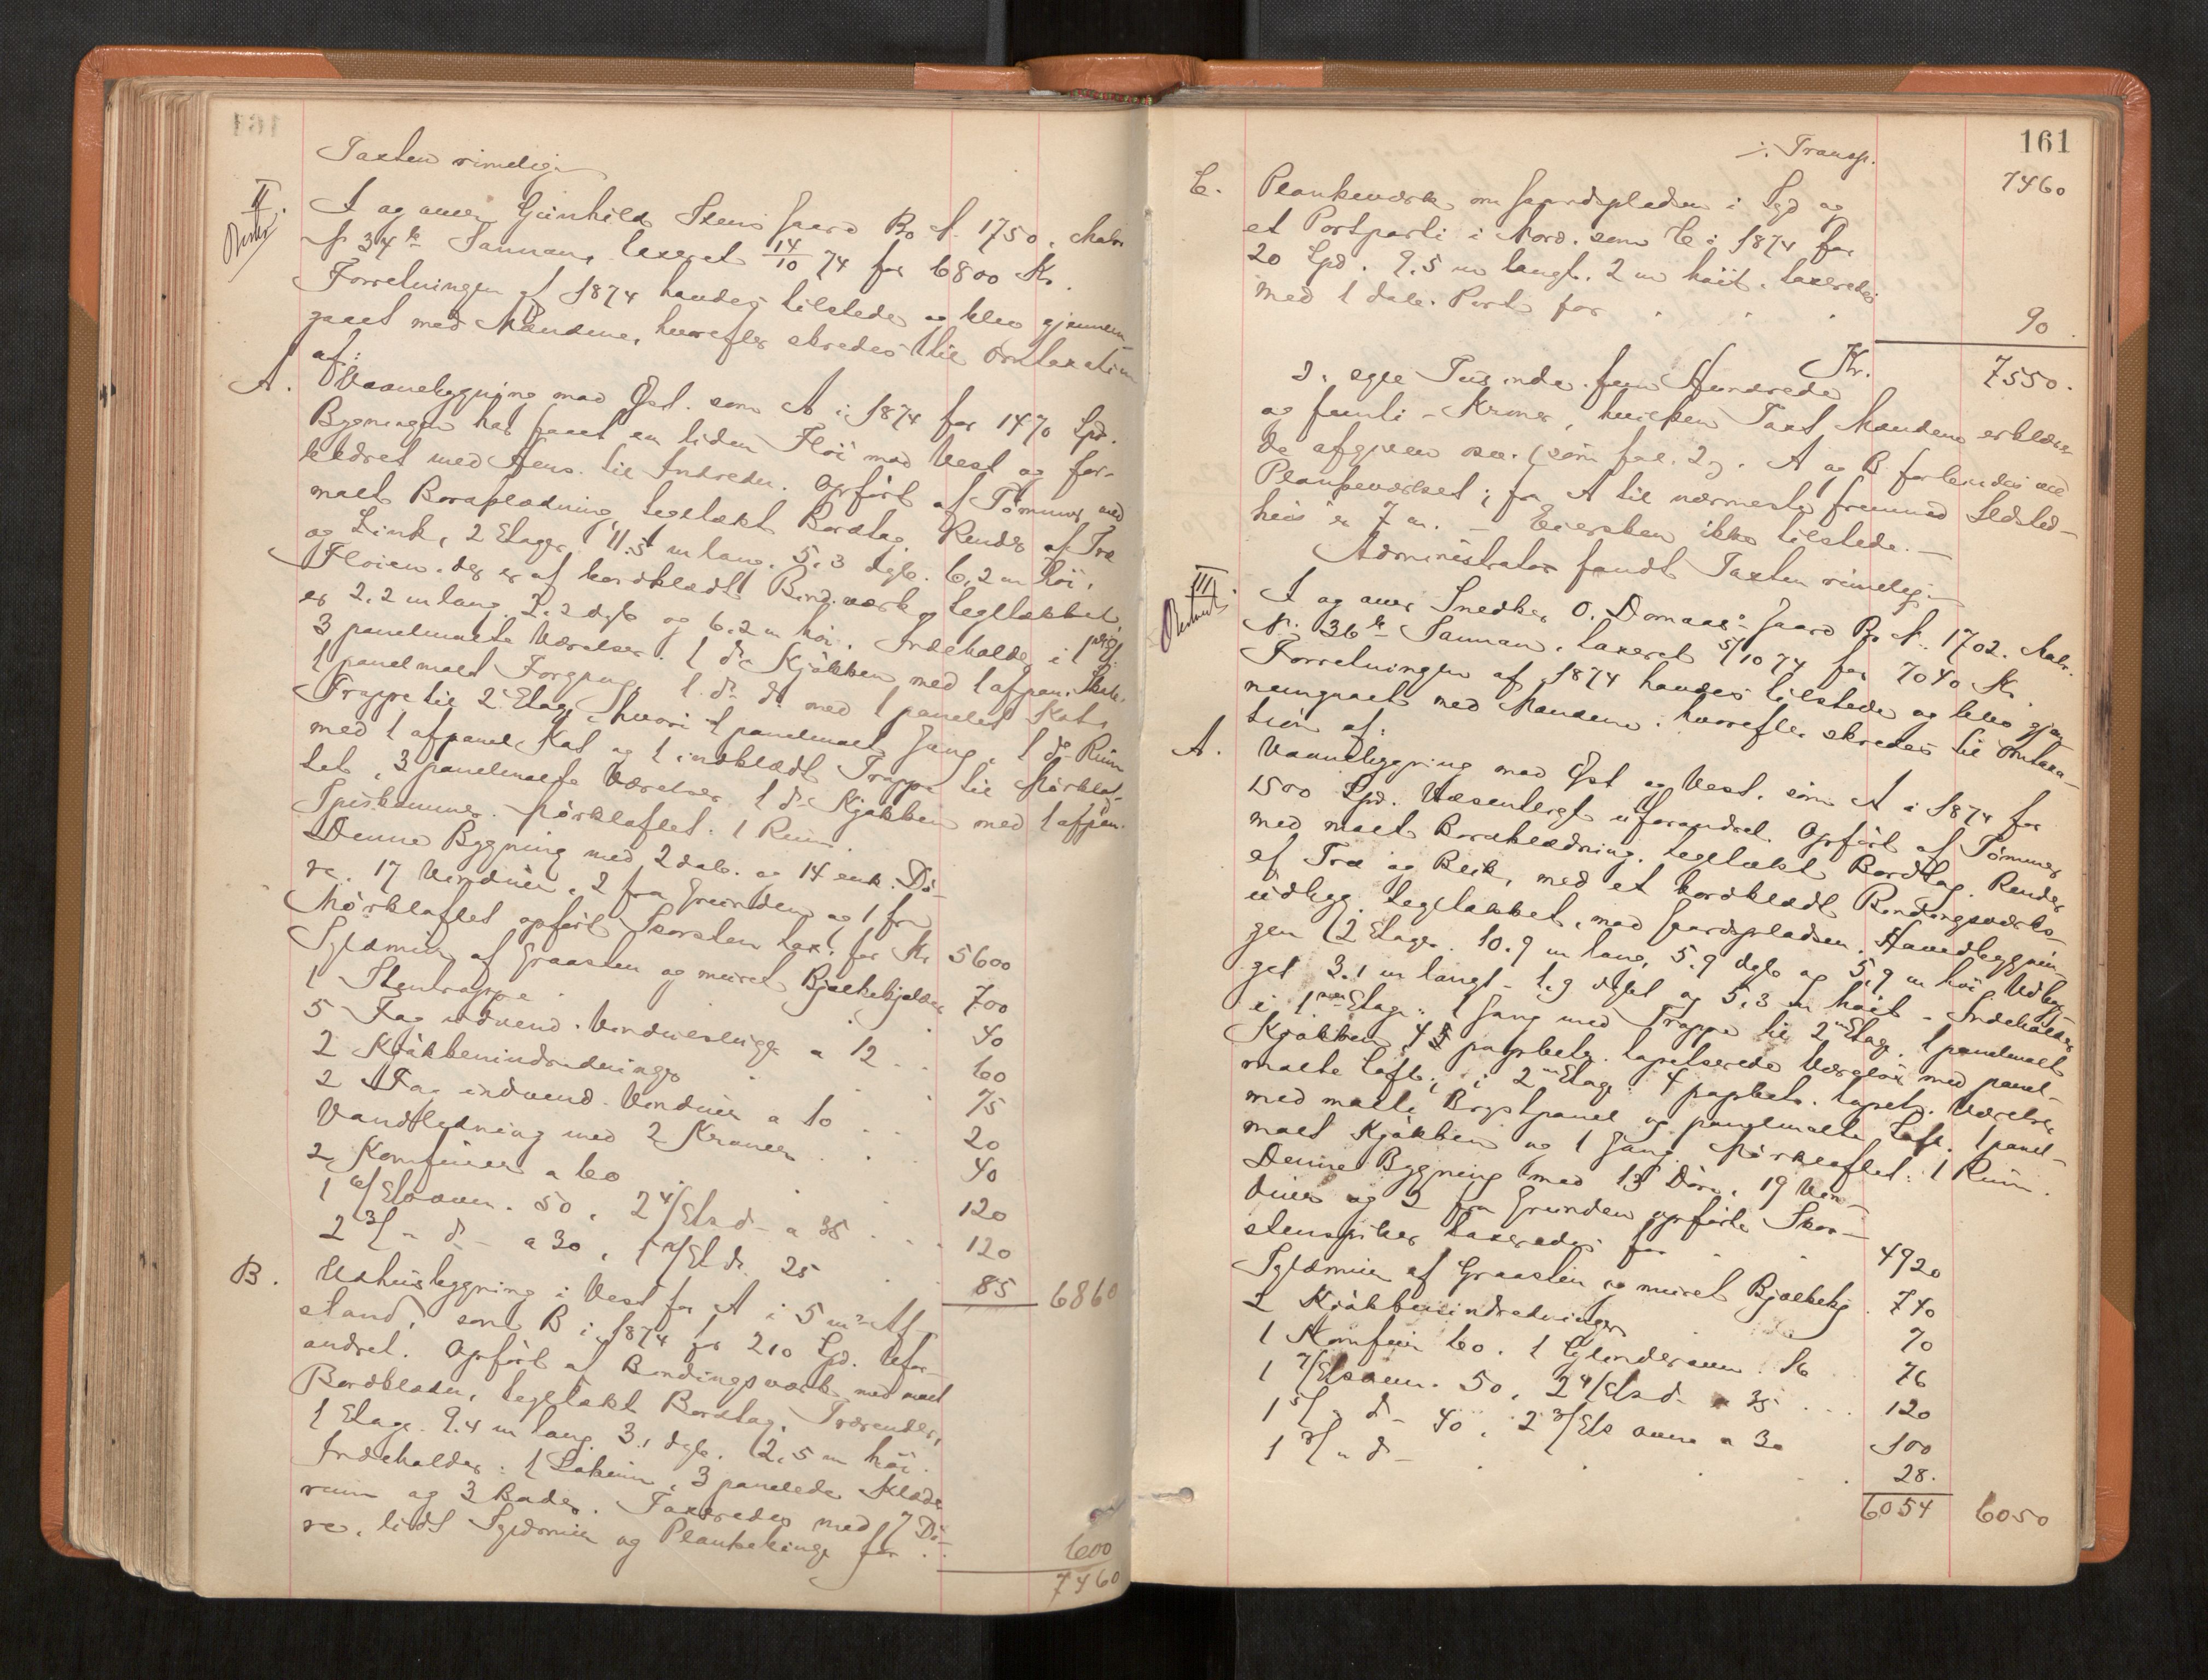 Taxten rimelig.
II.
A og aner Gunhild Stens Gaard Bo N. 1750. Matr
N. 34 b Sannan, taxeret 14/10 74 for 6800 Kr.
Forretningen af 1874 havdes tilstede og blev gjennem-
gaaet med Mændene, hvorefter skredes til Omtaxation
af:
A. Vaanebygning mod Øst. som A i 1874 for 1470 Spd.
Bygningen har faaet en liden Fløi mod Vest og for-
klaret med Hens. til Indreden. Opført af Tømmer med
malt Bordklædning, teglækt Bordtag. Render af Træ
og Zink, 2 Etager, 11.5 m lang, 5.3 dyb. 6.2 m høi.
Fløien, der er af bordklædt Bind.værk, tegltækket,
er 2.2 m lang, 2.2 dyb og 6.2 m høi. Indeholder i 1ste Etg:
3 panelmalte Værelser. 1 do Kjøkken med 1 afpan. Spisk.
1 panelmalt Forgang, 1 do do med 1 panelet Kot,
Trappe til 2 Etag, hvori 1 panelmalt Gang, 1 do Rum
med 1 afpanel Kot og 1 indklædt Trappe til Mørkelof-
tet, 3 panelmalte Værelser 1 do Kjøkken med 1 afpan.
Spiskammer. Mørkeloftet: 1 Rum.
Denne Bygning med 2 dob. og 14 enk. Dø-
re, 17 Vinduer, 2 fra Grunden og 1 fra
Mørkeloftet opført Skorsten tax. for Kr 5600
Syldmur af Graasten og muret Bjælkekjelder 700
1 Stentrappe . 40
5 Fag indvend. Vindueslugge a 12 . . 60
2 Kjøkkenindredninger . 75
2 Fag indvend. Vinduer a 10 . . 20
Vandledning med 2 Kraner . . 40
2 Komfurer a 60 . . 120
1 6/Etsovn. 50, 2 4/Ets d- a 35 . . . 120
2 3/ " d - a 30, 1 2/Et d. 25 . . 85 6860
B. Udhusbygning i Vest for A i 5 m's Af-
stand, som B i 1874 for 210 Spd. Ufor-
andret. Opført af Bindingsværk med malt
Bordklæden, tegltækt Bordtag, Trærender,
1 Etage 9.4 m lang 3.1 dyb. 2.5 m høi.
Indeholder: 1 Lokum, 3 panelede Klæde
rum og 3 Boder. Taxeredes med 7 Dø-
re, lidt Syldmur og Plankehinge for . . 600
7460
161
./. Transp. 7460
C. Plankeværk om Gaardspladsen i Syd og
et Portparti i Nord. som C i 1874 for
20 Spd. 9.5 m langt. 2 m høit. taxeredes
med 1 dob. Port for . . . 90.
Kr. 7550.
D. syv Tusinde fem Hundrede
og femti - Kroner, hvilken Taxt Mændene erklære-
de afgiven osv. (som fol. 2). A og B forbindes ved
Plankeværket; fra A til nærmeste fremmed Ildsted-
hus er 7 m. - Eiersken ikke tilstede. -
Administrator fandt Taxten rimelig. -
III.
A og aner Snedker O. Domaas's Gaard Bo N. 1702. Matr.
N. 36 b Sannan, taxeret 5/10 74 for 7040 Kr.
Forretningen af 1874 havdes tilstede og blev gjen-
nemgaaet med Mændene, hvorefter skredes til Omtaxa-
tion af:
A. Vaanebygning mod Øst og Vest, som A i 1874 for
1500 Spd. Væsentligt uforandret. Opført af Tømmer
med malt Bordklædning, tegltækt Bordtag. Render
af Træ og Blik, med et bordklædt Bindingsværks-
udbygg. tegltækket, mod Gaardspladsen. Hovedbygnin-
gen 2 Etager. 10.9 m lang, 5.9 dyb og 5.9 m høi Udbyg-
get 3.1 m langt - 1.9 dybt og 5.3 m høit - Indeholder
i 1ste Etage: 1 Gang med Trappe til 2den Etag. 1 panelmalt
Kjøkken 4 papbekl. tapetserede Værelser med panel-
malte Loft; i 2den Etag: 4 papbekl. tapets. Værelser
med malte Brystpanel og panelmalte Loft. 1 panel-
malt Kjøkken og 1 Gang. Mørkeloftet: 1 Rum.
Denne Bygning med 13 Døre, 19 Vin-
duer og 2 fra Grunden opførte Skor-
stenspiber taxeredes for . . 4920
Syldmur af Graasten og muret Bjælkekj. 740
2 Kjøkkenindredninger . . 70
1 Komfur 60. 1 Cylinderovn 16 . 76
1 7/Etsovn. 50, 2 4/Ets d- a 35 . . . 120
1 5/ " d - 40, 2 3/Ets ovne a 30 100
1 3/ " d - . . . . 28.
6054 6050